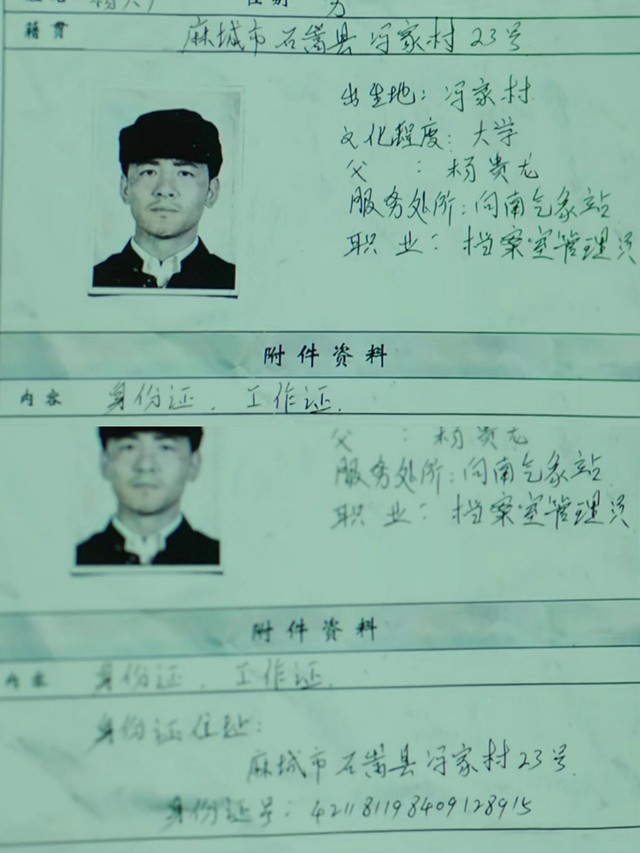 籍贯 麻城市石嵩县冯家村23号
出生地：冯家村
文化程度：大学
父：杨贵龙
服务处所：向南气象站
职业：档案室管理员
附件资料
内容 身份证、工作证.
父：杨贵龙
服务处所：向南气象站
职业：档案室管理员
附件资料
内容 身份证、工作证.
身份证住址：
麻城市石嵩县冯家村23号
身份证号：421181198409128915